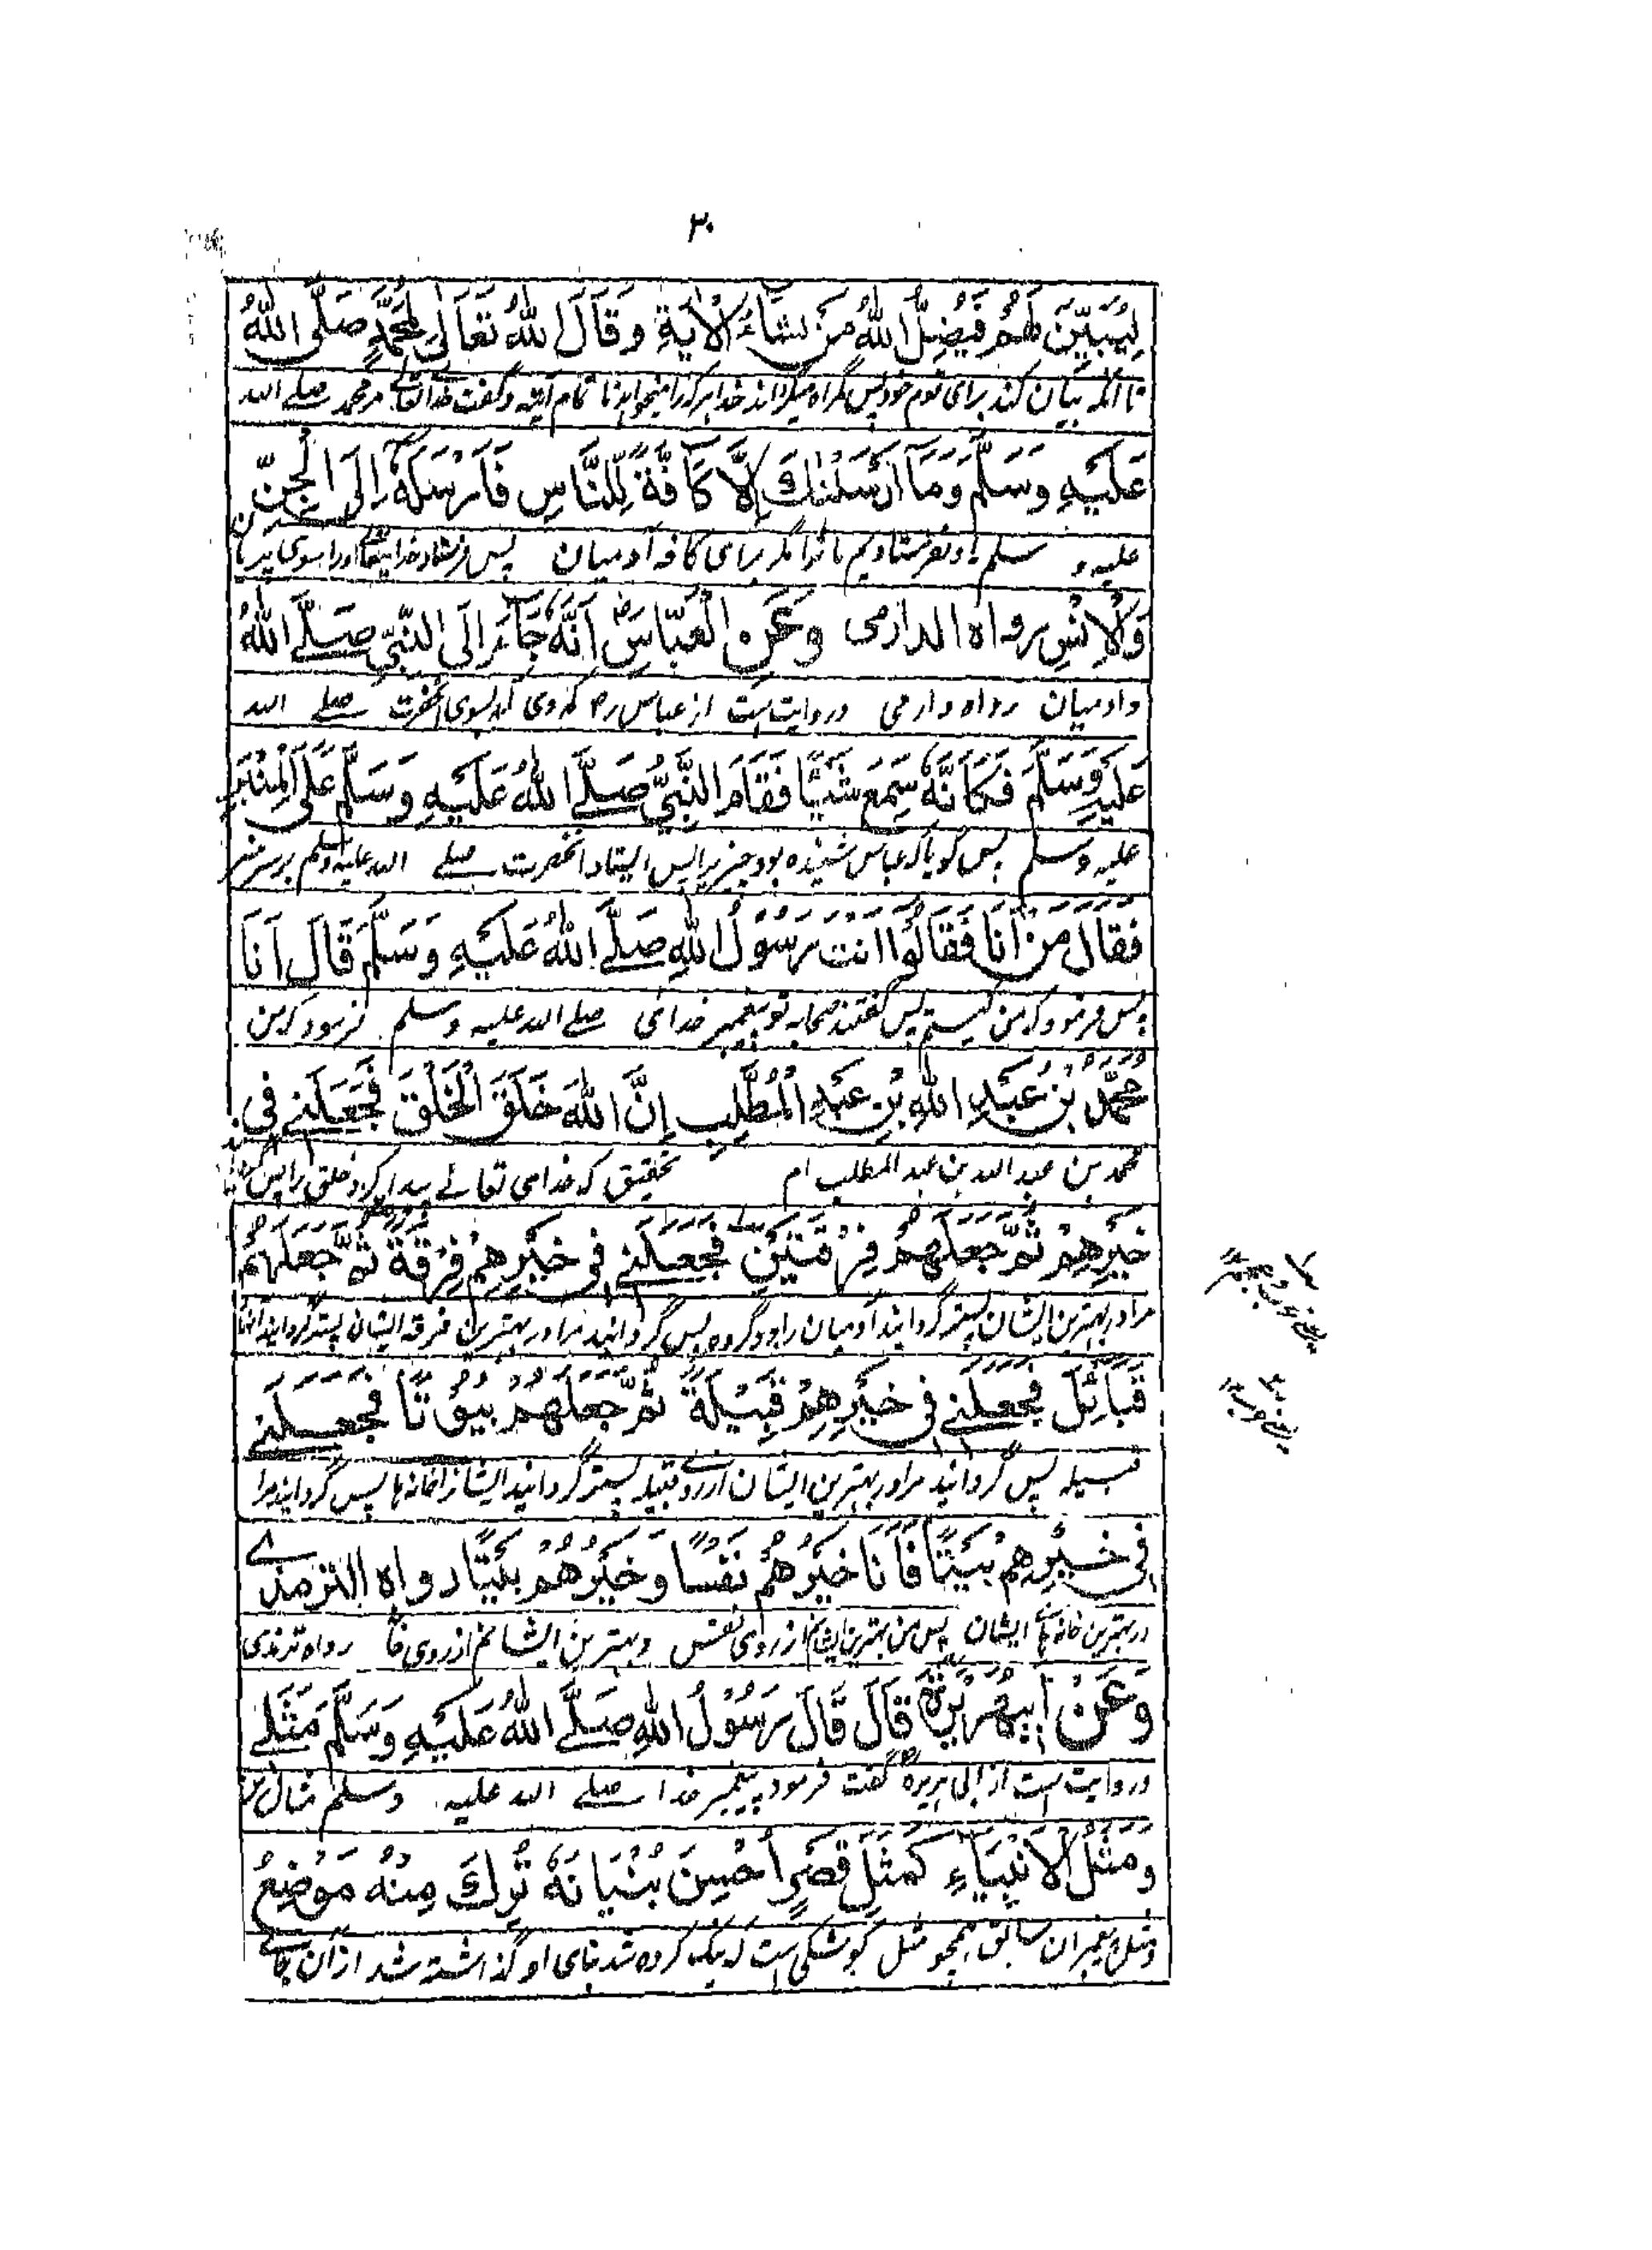 ۳۰
لِيُبَيِّنَ لَهُمْ فَيُضِلُّ اللهُ مَنْ يَشَاءُ الْاٰيَةِ وَقَالَ اللهُ تَعَالٰى لِمُحَمَّدٍ صَلَّى اللهُ
تا آنکه بیان کند برای قوم خود پس گمراه میگرداند خدا هرکرا میخواهد تا تمام آیته وگفت خدایتعالے مر محمد صلے الله
عَلَيْهِ وَسَلَّمَ وَمَآ اَرْسَلْنٰكَ اِلَّا كَآفَّةً لِّلنَّاسِ فَاَرْسَلَهٗ اِلَى الْجِنِّ
علیه و سلم و نفرستادیم ما ترا مگر برای کافه آدمیان پس فرستاد خدایتعالے اورا بسوی پریان
وَالْاِنْسِ رواه الدارمی وَعَنِ الْعَبَّاسِ رض اَنَّهٗ جَآءَ اِلَى النَّبِيِّ صَلَّے اللهُ
وادمیان رواه دارمی و روایت است از عباس رض که وی آمد بسوی آنحضرت صلے الله
عَلَيْهِ وَسَلَّمَ فَكَاَنَّهٗ سَمِعَ شَيْئًا فَقَامَ النَّبِيُّ صَلَّے اللهُ عَلَيْهِ وَسَلَّمَ عَلَى الْمِنْبَرِ
علیه وسلم پس گویا که عباس شنیده بود چیزیرا پس ایستاد آنحضرت صلے الله علیه وسلم بر سر منبر
فَقَالَ مَنْ اَنَا فَقَالُوْا اَنْتَ رَسُوْلُ اللهِ صَلَّے اللهُ عَلَيْهِ وَسَلَّمَ قَالَ اَنَا
پس فرمود که من کیستم پس گفتند صحابه تو پیغمبر خدائی صلے الله علیه وسلم فرمود که من
مُحَمَّدُ بْنُ عَبْدِ اللهِ بْنِ عَبْدِ الْمُطَّلِبِ اِنَّ اللهَ خَلَقَ الْخَلْقَ فَجَعَلَنِے فِي
محمد بن عبد الله بن عبد المطلب ام تحقیق که خدای تعالے پیدا کرد خلق را پس
خَيْرِهِمْ ثُمَّ جَعَلَهُمْ فِرْقَتَيْنِ فَجَعَلَنِے فِي خَيْرِهِمْ فِرْقَةً ثُمَّ جَعَلَهُمْ
مرا در بهترین ایشان پستر گردانید آدمیان را دو گروه پس گردانید مرا در بهترین فرقه ایشان پستر گردانید
قَبَآئِلَ فَجَعَلَنِے فِي خَيْرِهِمْ قَبِيْلَةً ثُمَّ جَعَلَهُمْ بُيُوْتًا فَجَعَلَنِے
قبیله پس گردانید مرا در بهترین ایشان از روے قبیله پستر گردانید ایشانرا خانه ها پس گردانید مرا
فِي خَيْرِهِمْ بَيْتًا فَاَنَا خَيْرُهُمْ نَفْسًا وَّخَيْرُهُمْ بَيْتًا رواه الترمذے
در بهترین خانه هاے ایشان پس من بهترین ایشانم از روی نفس و بهترین ایشانم از روی خانه رواه ترمذی
وَعَنْ اَبِيْهُرَيْرَةَ رض قَالَ قَالَ رَسُوْلُ اللهِ صَلَّے اللهُ عَلَيْهِ وَسَلَّمَ مَثَلِے
و روایت است از ابی هریره گفت فرمود پیغمبر خدا صلے الله علیه وسلم مثال من
وَمَثَلُ الْاَنْبِيَآءِ كَمَثَلِ قَصْرٍ اُحْسِنَ بُنْيَانَهٗ تُرِكَ مِنْهُ مَوْضِعُ
ومثل پیغمبران سابق همچو مثل کوشکی است که نیک کرده شد بنای او گذاشته شد ازان جاے